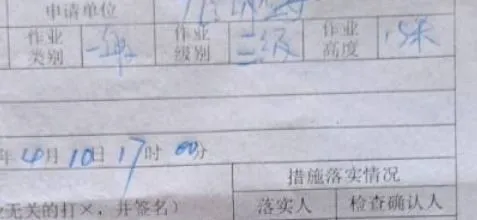 申请单位
作业类别 一般 作业级别 三级 作业高度 15米
年4月10日17时00分
措施落实情况
无关的打×，并签名） 落实人 检查确认人